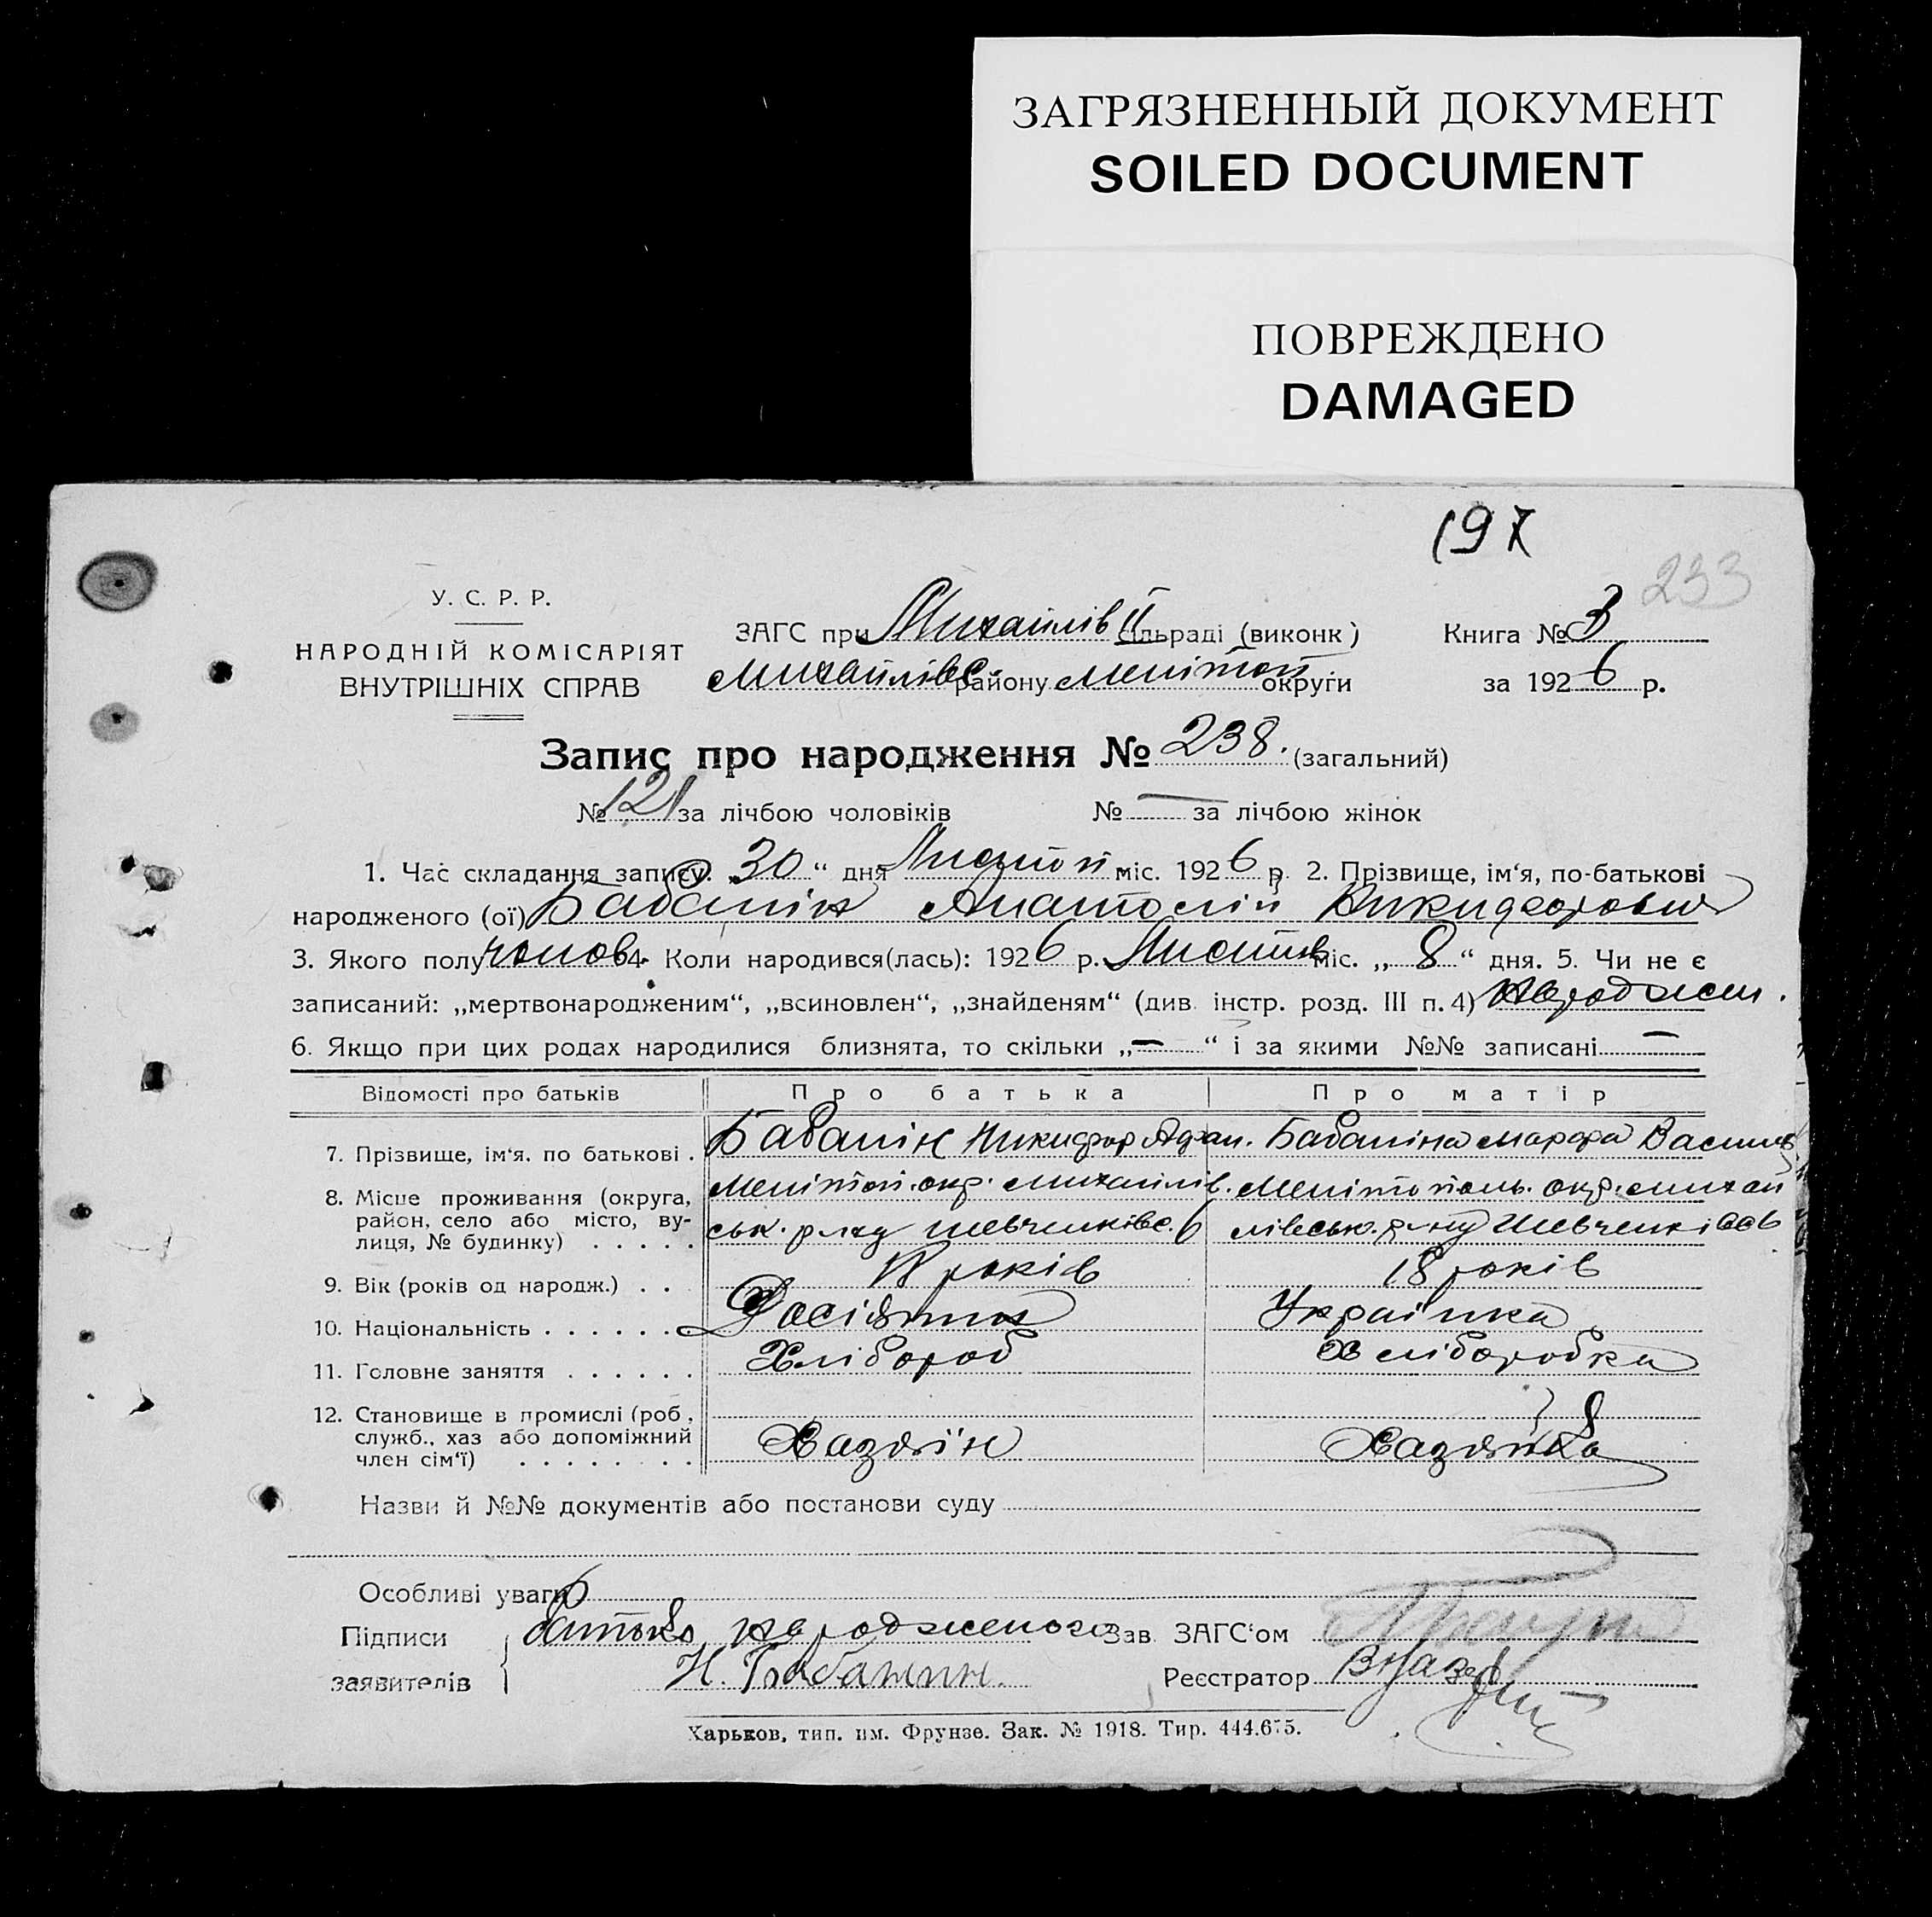 ЗАГРЯЗНЕННЫЙ ДОКУМЕНТ
SOILED DOCUMENT
ПОВРЕЖДЕНО
DAMAGED
197
233
У. С. Р. Р.
НАРОДНІЙ КОМІСАРІЯТ
ВНУТРІШНІХ СПРАВ
ЗАГС при Михайлів II сільраді (виконк) Книга № 3
Михайлівс. району Мелітоп. округи за 1926 р.
Запис про народження № 238. (загальний)
№ 121 за лічбою чоловіків № — за лічбою жінок
1. Час складання запису: „30“ дня Листоп міс. 1926 р. 2. Прізвище, ім‘я, по-батькові
народженого (ої) Бабанін Анатолій Никифорович
3. Якого полу чолов. 4. Коли народився(лась): 1926 р. Листоп міс. „8“ дня. 5. Чи не є
записаний: „мертвонародженим“, „всиновлен“, „знайденям“ (див. інстр. розд. III п. 4) Народжен.
6. Якщо при цих родах народилися близнята, то скільки „—“ і за якими №№ записані —
Відомості про батьків Про батька Про матір
7. Прізвище, ім‘я, по батькові . Бабанін Никифор Афан. Бабаніна Марфа Василів
8. Місце проживання (округа, район, село або місто, вулиця, № будинку) . . . . . Мелітоп. окр. Михайлів. Мелітополь. окр. Михай
ськ. р-ну Шевченківс. лівськ. р-ну Шевченківс
9. Вік (років од народж.) . . років 18 років
10. Національність . . . . . . Росіянин Українка
11. Головне заняття . . . . . . Хлібороб Хліборобка
12. Становище в промислі (роб., служб., хаз або допоміжний член сім‘ї) . . . . . . . . Хазяїн Хазяйка
Назви й №№ документів або постанови суду
Особливі уваги
Підписи батько народженого Зав. ЗАГС‘ом
заявителів Н. Бабанин. Реєстратор
Харьков, тип. им. Фрунзе. Зак. № 1918. Тир. 444.675.